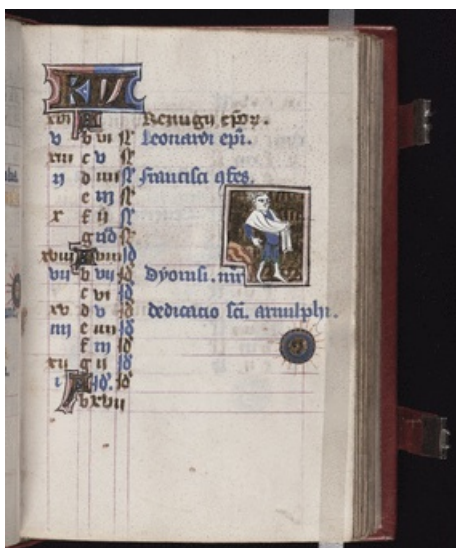 KL
xvi A Remigii epi.
v b vi N Leonardi epi.
xiii c v N
ii d iiii N Francisci 9fes.
e iii N
x f ii N
g no N
xviii A viii id
vii b vii id dyonisi. mr
c vi id
xv d v id dedicacio sci. arnulphi.
iiii e iiii id
f iii id
xii g ii id
i A id9. id
b xvii